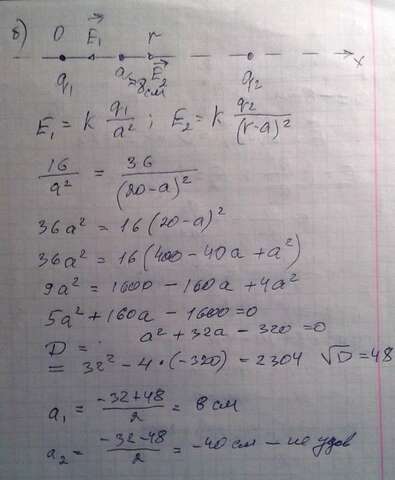 в) 0 r x
q₁ a = 8 см q₂
E₁ E₂
E₁ = k q₁/a² ; E₂ = k q₂/(r-a)²
16/a² = 36/(20-a)²
36a² = 16(20-a)²
36a² = 16(400 - 40a + a²)
9a² = 1600 - 160a + 4a²
5a² + 160a - 1600 = 0
a² + 32a - 320 = 0
D =
= 32² - 4·(-320) = 2304 √D = 48
a₁ = (-32+48)/2 = 8 см
a₂ = (-32-48)/2 = -40 см - не удов